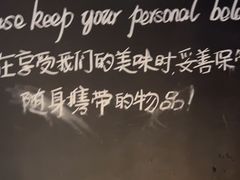 ase keep your personal bel
在享受我们的美味时,妥善保
随身携带的物品!